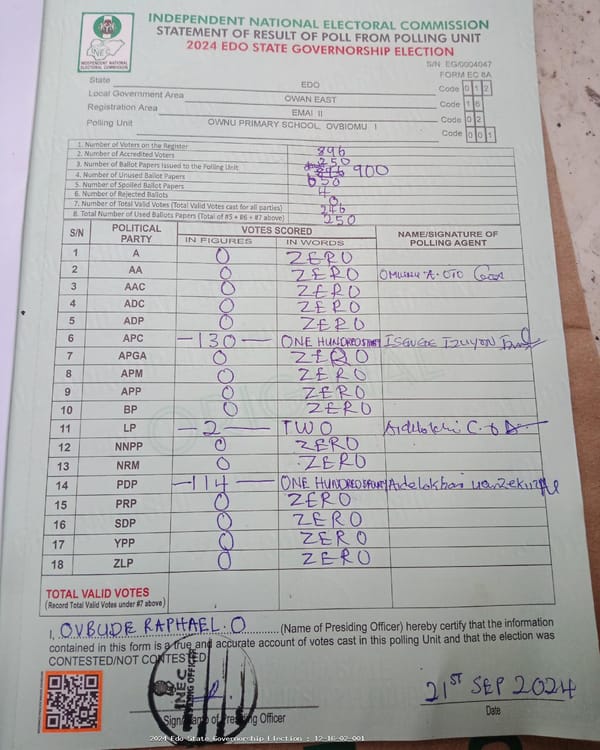 INDEPENDENT NATIONAL ELECTORAL COMMISSION
STATEMENT OF RESULT OF POLL FROM POLLING UNIT
2024 EDO STATE GOVERNORSHIP ELECTION
INDEPENDENT NATIONAL ELECTORAL COMMISSION
S/N EG/0004047
FORM EC 8A
State EDO Code 0 1 2
Local Government Area OWAN EAST Code 1 6
Registration Area EMAI II Code 0 2
Polling Unit OWNU PRIMARY SCHOOL, OVBIOMU I Code 0 0 1
1. Number of Voters on the Register 896
2. Number of Accredited Voters 250
3. Number of Ballot Papers Issued to the Polling Unit 900
4. Number of Unused Ballot Papers 650
5. Number of Spoiled Ballot Papers 4
6. Number of Rejected Ballots 0
7. Number of Total Valid Votes (Total Valid Votes cast for all parties) 246
8. Total Number of Used Ballots Papers (Total of #5 + #6 + #7 above) 250
S/N POLITICAL PARTY VOTES SCORED NAME/SIGNATURE OF POLLING AGENT
IN FIGURES IN WORDS
1 A 0 ZERO
2 AA 0 ZERO
3 AAC 0 ZERO
4 ADC 0 ZERO
5 ADP 0 ZERO
6 APC -130- ONE HUNDRED
7 APGA 0 ZERO
8 APM 0 ZERO
9 APP 0 ZERO
10 BP 0 ZERO
11 LP -2- TWO
12 NNPP 0 ZERO
13 NRM 0 ZERO
14 PDP -114- ONE HUNDRED
15 PRP 0 ZERO
16 SDP 0 ZERO
17 YPP 0 ZERO
18 ZLP 0 ZERO
TOTAL VALID VOTES
(Record Total Valid Votes under #7 above)
I, OVBUDE RAPHAEL. O (Name of Presiding Officer) hereby certify that the information
contained in this form is a true and accurate account of votes cast in this polling Unit and that the election was
CONTESTED/NOT CONTESTED
INEC
21ST SEP 2024
Signature of Presiding Officer Date
2024 Edo State Governorship Election : 12-16-02-001